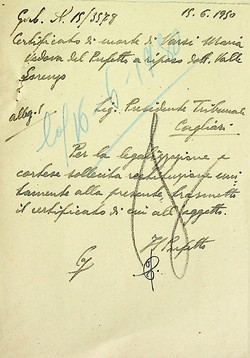 Gab. N. 15/3578 15.6.1930
Certificato di morte di Sarsi Maria
vedova del Prefetto a riposo dott. Valle
Lorenzo
alleg. 1
Sig. Presidente Tribunale
Cagliari
Per la legalizzazione e
cortese sollecita restituzione uni
tamente alla presente, trasmetto
il certificato di cui all'oggetto.
Il Prefetto